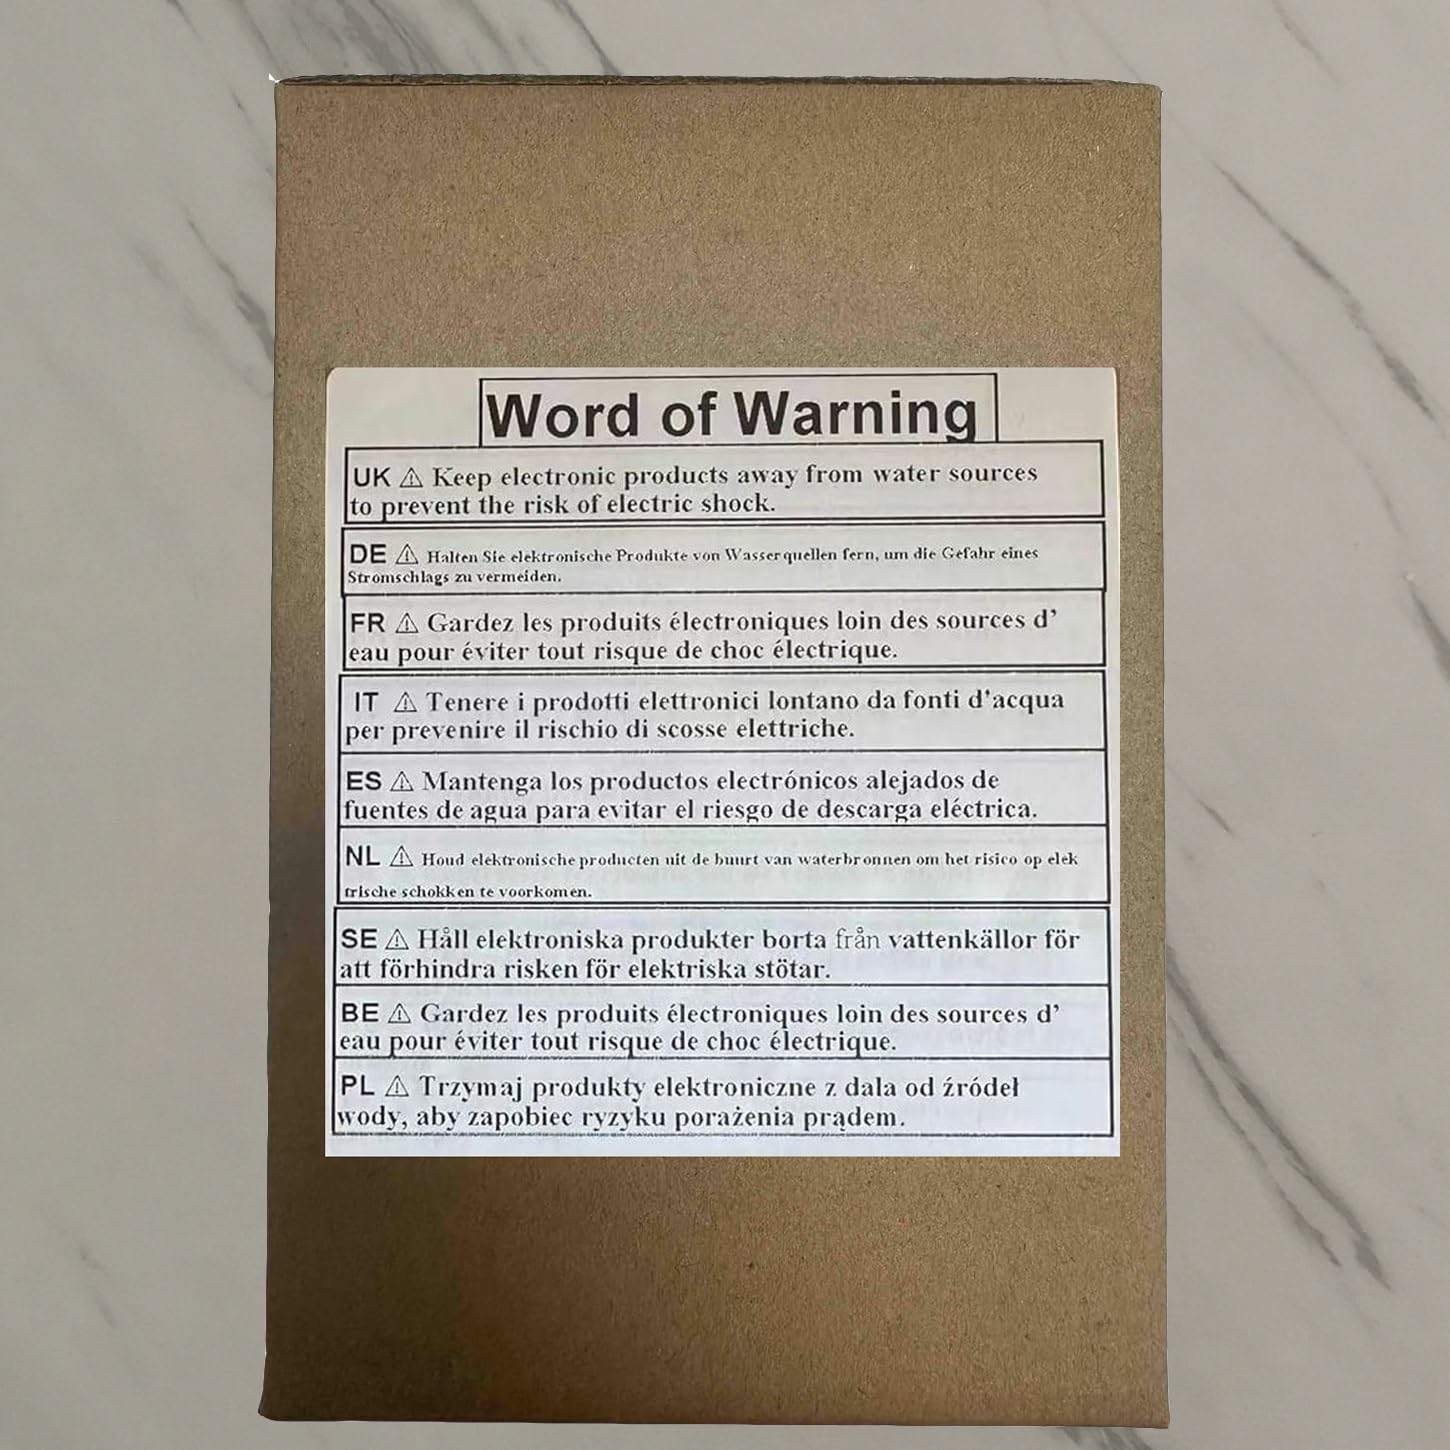 Word of Warning
UK ⚠ Keep electronic products away from water sources
to prevent the risk of electric shock.
DE ⚠ Halten Sie elektronische Produkte von Wasserquellen fern, um die Gefahr eines
Stromschlags zu vermeiden.
FR ⚠ Gardez les produits électroniques loin des sources d’
eau pour éviter tout risque de choc électrique.
IT ⚠ Tenere i prodotti elettronici lontano da fonti d'acqua
per prevenire il rischio di scosse elettriche.
ES ⚠ Mantenga los productos electrónicos alejados de
fuentes de agua para evitar el riesgo de descarga eléctrica.
NL ⚠ Houd elektronische producten uit de buurt van waterbronnen om het risico op elek
trische schokken te voorkomen.
SE ⚠ Håll elektroniska produkter borta från vattenkällor för
att förhindra risken för elektriska stötar.
BE ⚠ Gardez les produits électroniques loin des sources d’
eau pour éviter tout risque de choc électrique.
PL ⚠ Trzymaj produkty elektroniczne z dala od źródeł
wody, aby zapobiec ryzyku porażenia prądem.